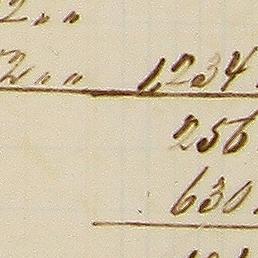 2 〃
2 〃 1,234.
256
630.